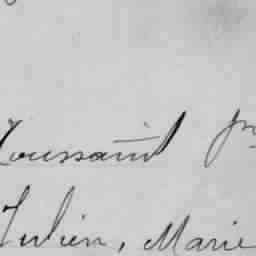 Toussaint
Julien, Marie